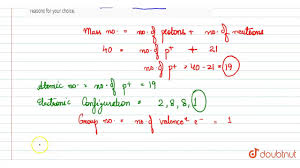 reasons for your choice.
Mass no. = no. of protons + no. of neutrons
40 = no. of p+ + 21
no. of p+ = 40 - 21 = 19
Atomic no. = no. of p+ = 19
Electronic Configuration = 2, 8, 8, 1
Group no. = no. of valence e- = 1
doubtnut